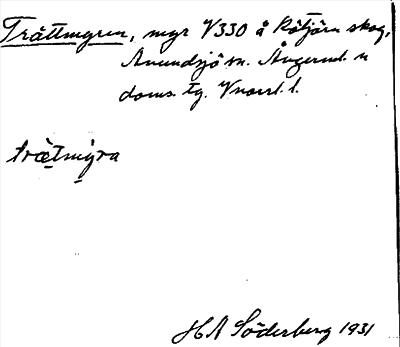 Trättmyren, myr V330 å Rötjärn skog,
Anundsjö sn. Ångerml. n
doms. tg. Vnorrl. l.
trä̀tmýra
H A Söderberg 1931